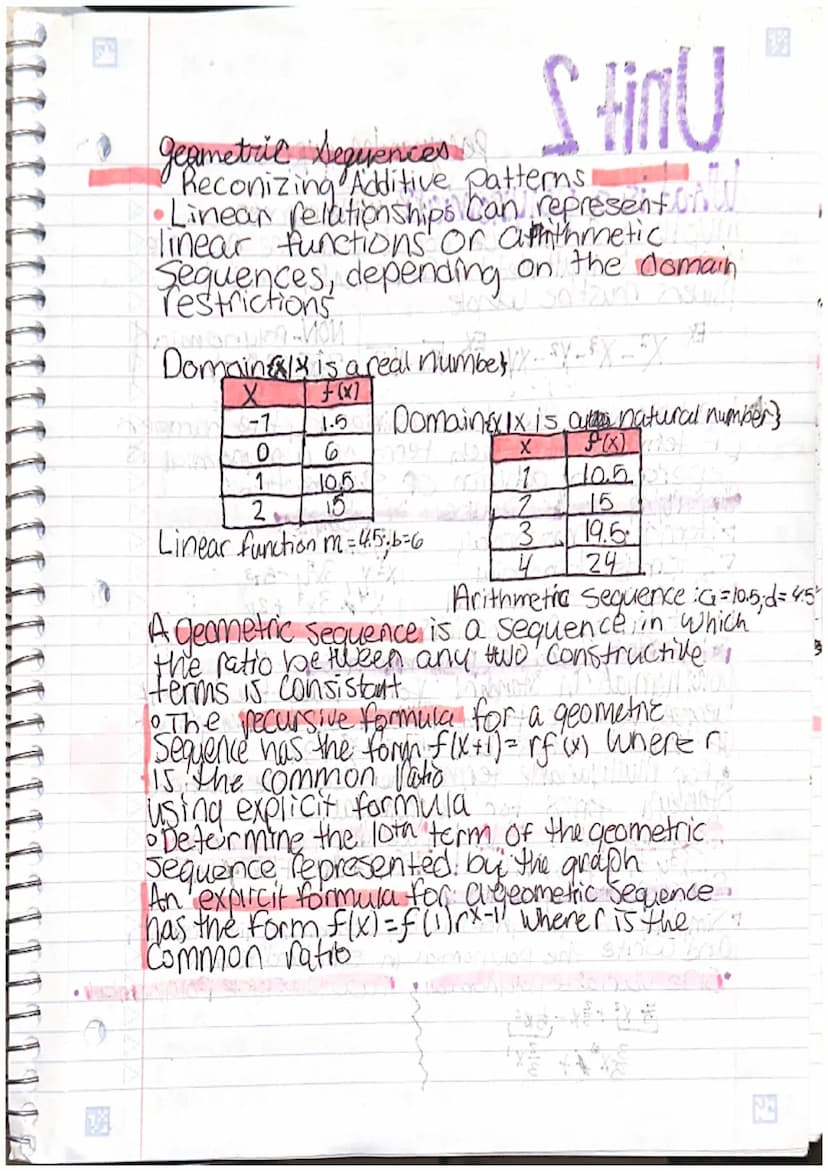 geometric sequences
Reconizing Additive patterns
• Linear relationships can represent
linear functions or arithmetic
sequences, depending on the domain
restrictions
Domain {x|x is a real number}
x f(x)
-1 1.5
0 6
1 10.5
2 15
Linear function m=4.5; b=6
Domain {x|x is a natural number}
x f(x)
1 10.5
2 15
3 19.5
4 24
Arithmetic sequence: a=10.5; d=4.5
A geometric sequence is a sequence in which
the ratio between any two constructive
terms is consistant
• The recursive formula for a geometric
sequence has the form f(x+1) = rf(x) where r
is the common ratio
using explicit formula
• Determine the 10th term of the geometric
sequence represented by the graph
An explicit formula for a geometric sequence
has the form f(x) = f(1)r^x-1 where r is the
common ratio